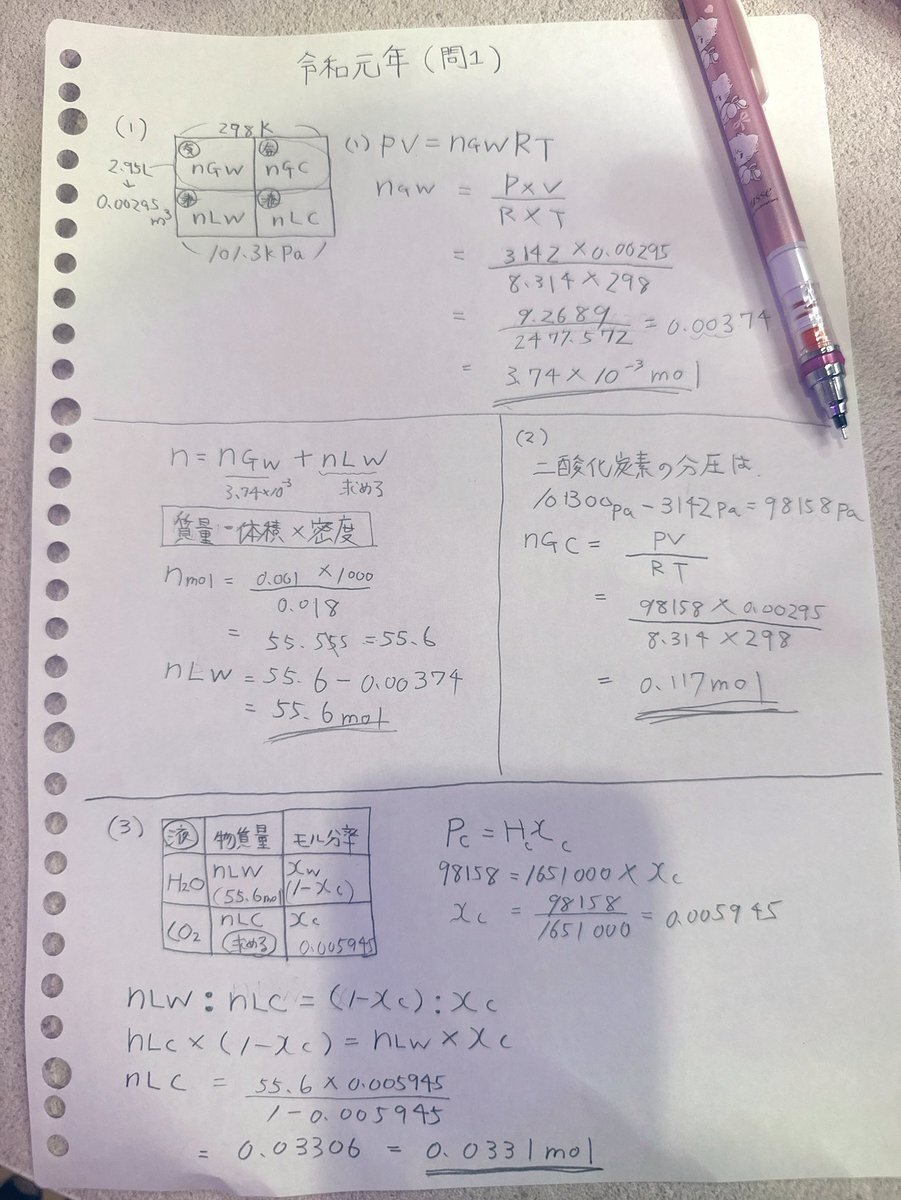 令和元年(問1)
(1)
298K
気 nGW 気 nGC
2.95L
↓
0.00295m³
液 nLW 液 nLC
101.3kPa
(1) PV = nGWRT
nGW = P×V / R×T
= 3142 × 0.00295 / 8.314 × 298
= 9.2689 / 2477.572 = 0.00374
= 3.74 × 10⁻³ mol
n = nGW + nLW
3.74×10⁻³ 求める
質量=体積×密度
nmol = 0.001 × 1000 / 0.018
= 55.555 = 55.6
nLW = 55.6 - 0.00374
= 55.6mol
(2)
二酸化炭素の分圧は.
101300Pa - 3142Pa = 98158Pa
nGC = PV / RT
= 98158 × 0.00295 / 8.314 × 298
= 0.117mol
(3)
液 物質量 モル分率
H₂O nLW (55.6mol) xw (1-xc)
CO₂ nLC 求める xc 0.005945
Pc = Hcxc
98158 = 1651000 × xc
xc = 98158 / 1651000 = 0.005945
nLW : nLC = (1-xc) : xc
nLC × (1-xc) = nLW × xc
nLC = 55.6 × 0.005945 / 1-0.005945
= 0.03306 = 0.0331mol